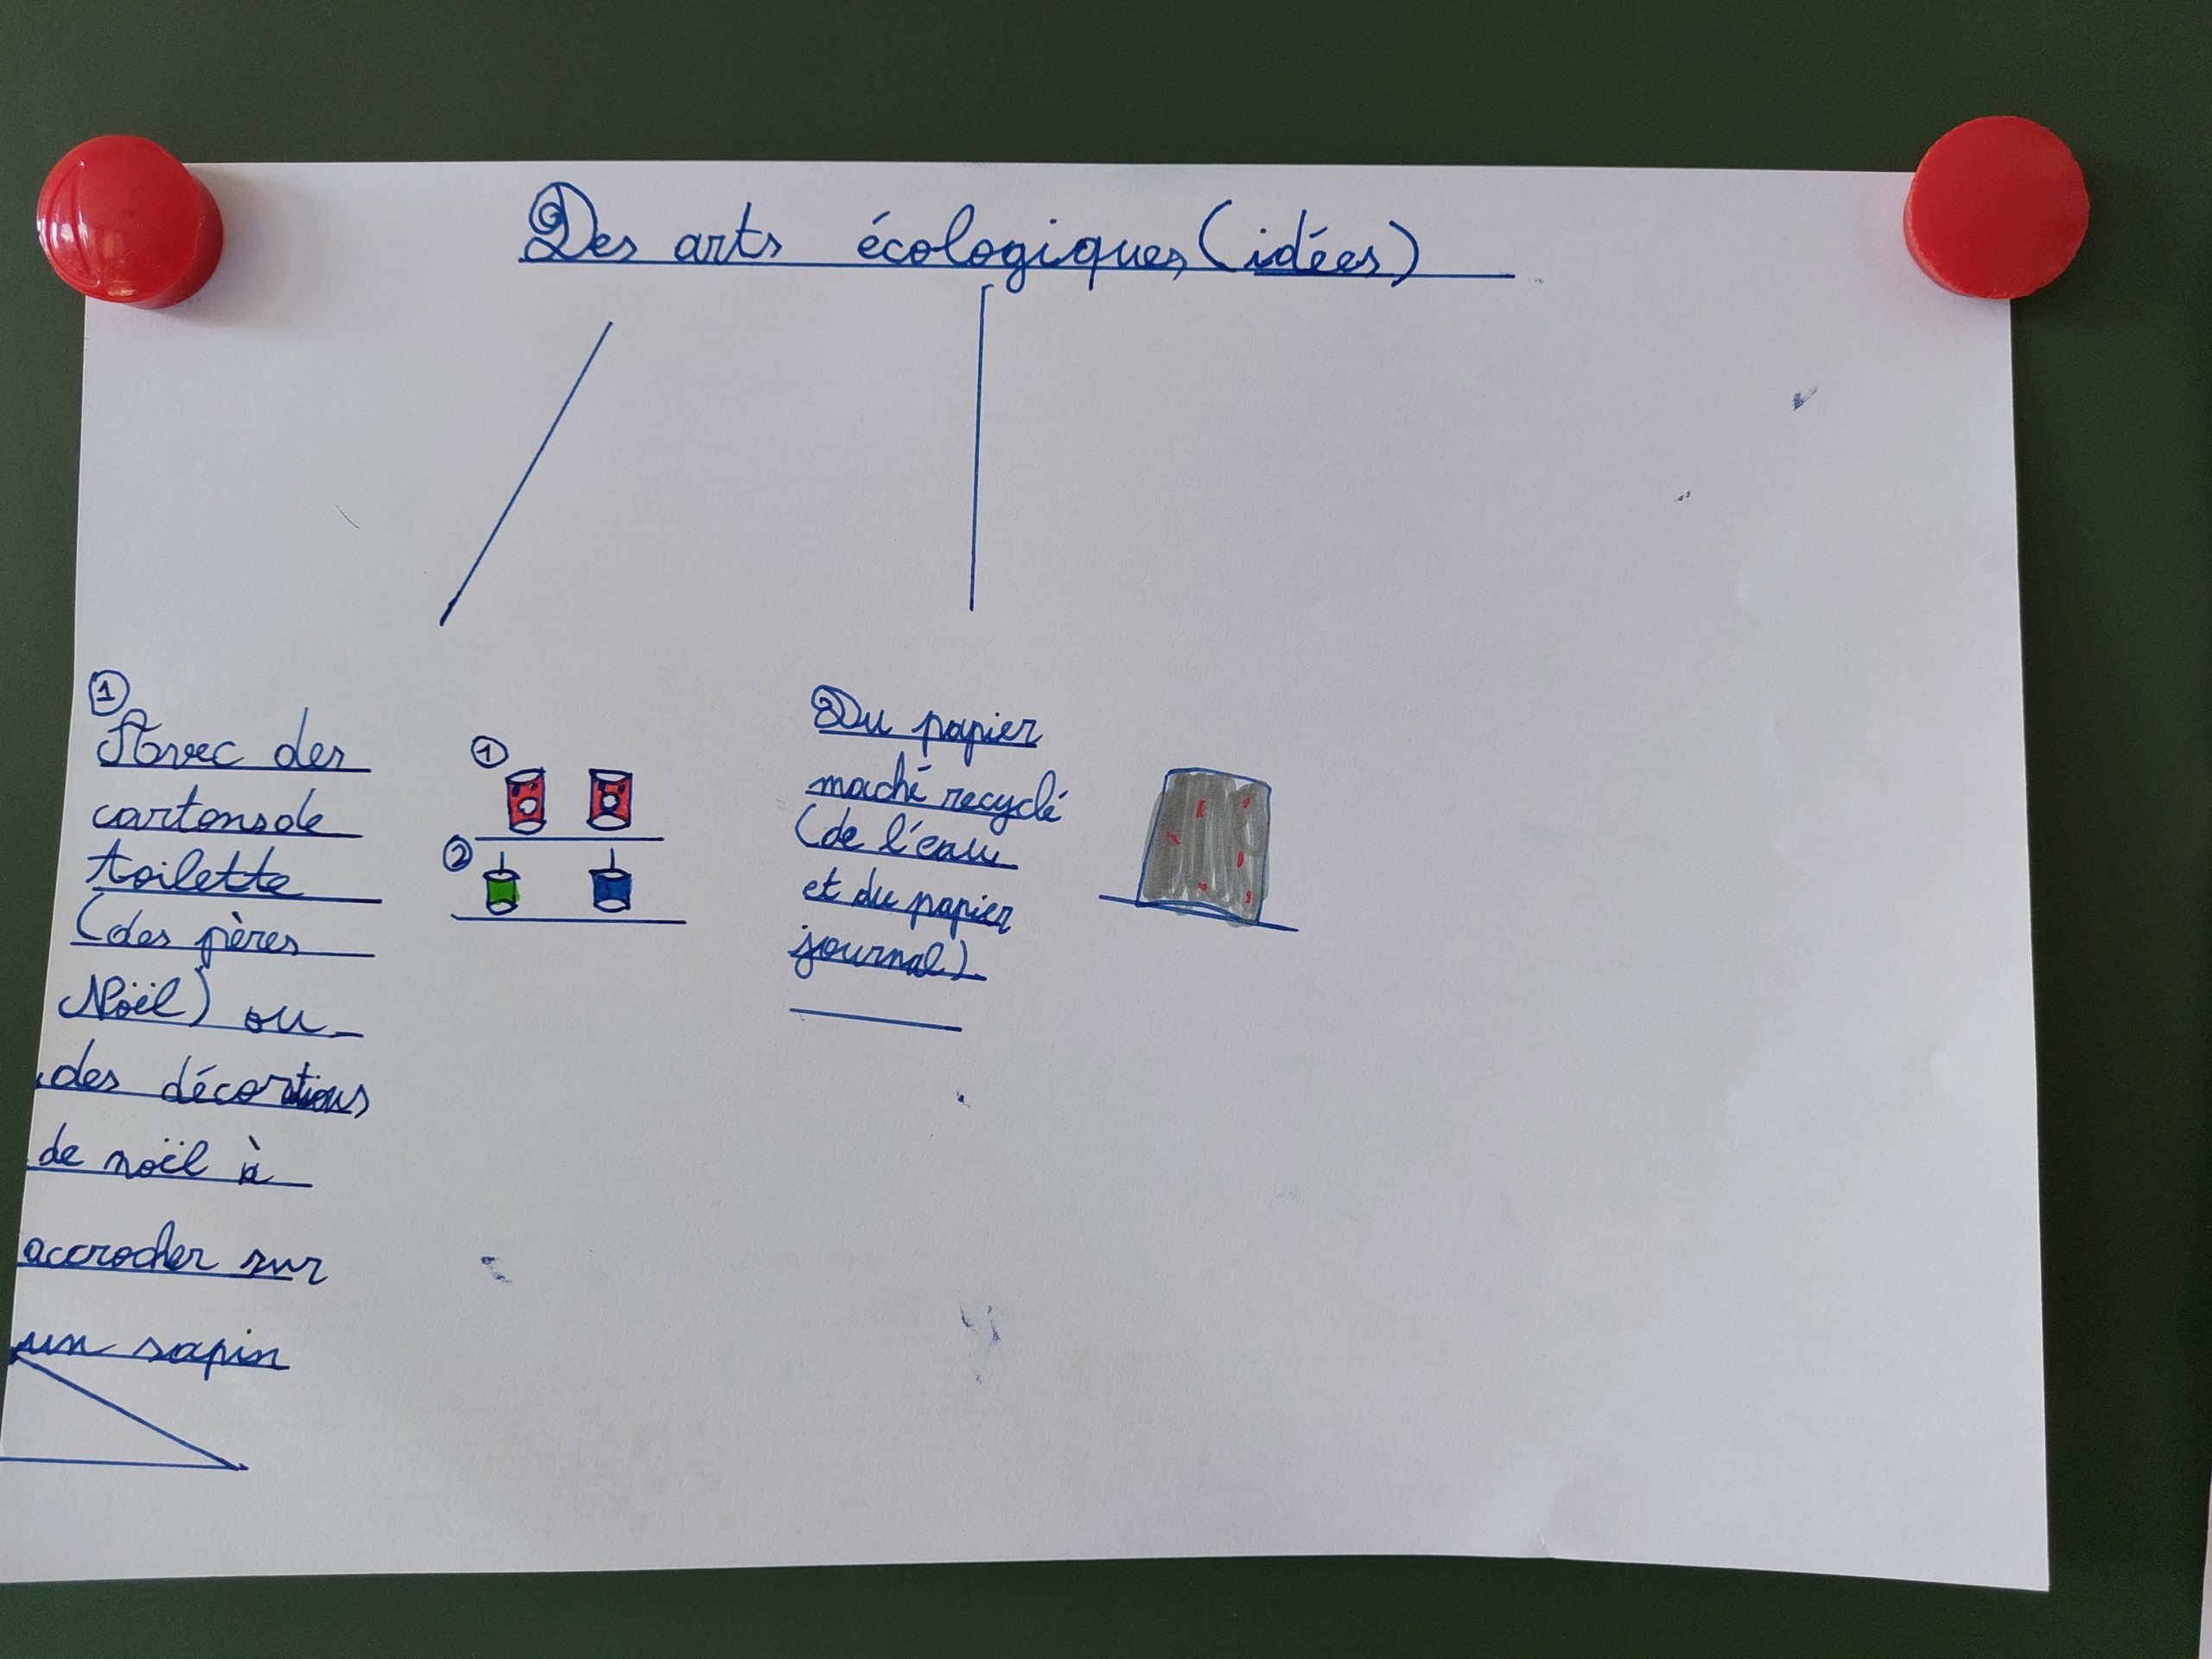 Des arts écologiques (idées)
①
Avec des
cartons de
toilette
(des pères
Noël) ou
des décortions
de noël à
accrocher sur
un sapin
①
②
Du papier
maché recyclé
(de l'eau
et du papier
journal)